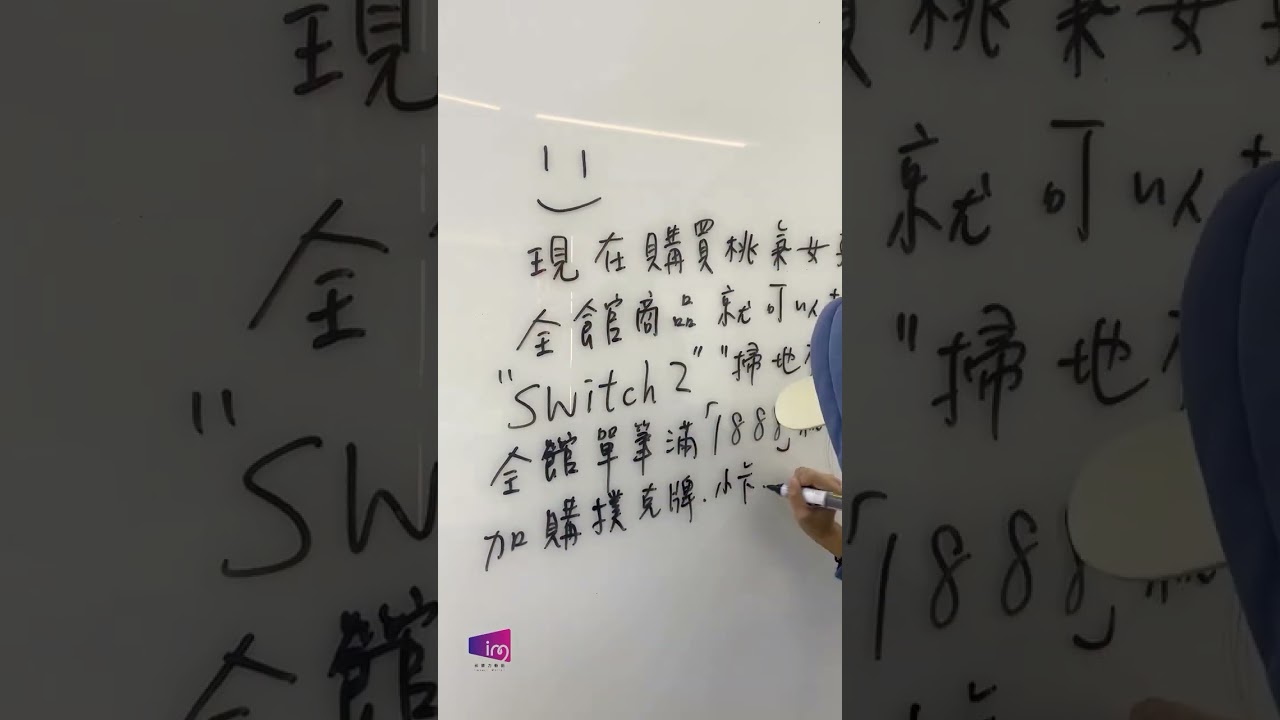 現在購買桃氣女
全館商品就可以
"Switch 2" "掃地
全館單筆滿「1888」
加購撲克牌.小卡.
im